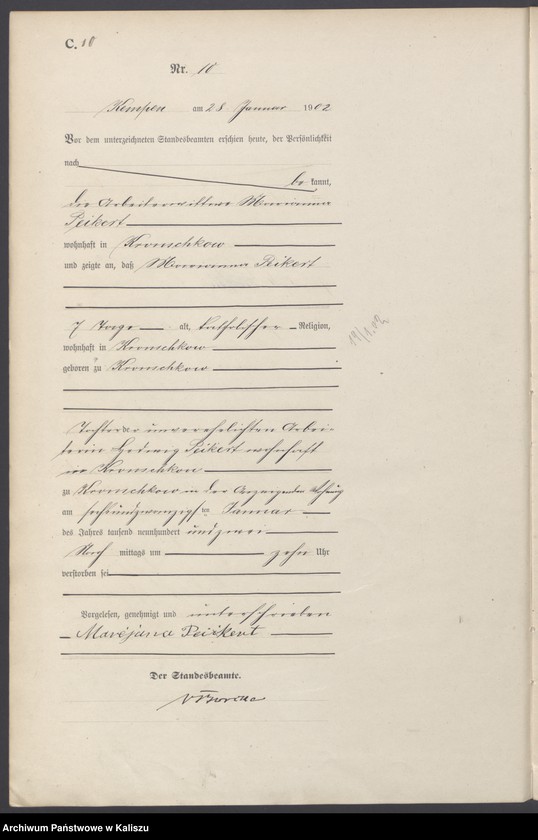 C. 10
Nr. 10
Kempen am 28 Januar 1902
Vor dem unterzeichneten Standesbeamten erschien heute, der Persönlichkeit
nach
be kannt,
die Arbeiterwittwe Marianna
Peikert
wohnhaft in Kronschkow
und zeigte an, daß Marianna Peikert
7 Tage alt, katholischer Religion,
19/1.02
wohnhaft in Kronschkow
geboren zu Kronschkow
Tochter der unverehelichten Arbei-
terin Hedwig Peikert wohnhaft
in Kronschkow
zu Kronschkow in der
am sechsundzwanzigsten Januar
des Jahres tausend neunhundert und zwei
Nach mittags um zehn Uhr
verstorben sei
Vorgelesen, genehmigt und unterschrieben
Marėjana Peikert
Der Standesbeamte.
Archiwum Państwowe w Kaliszu